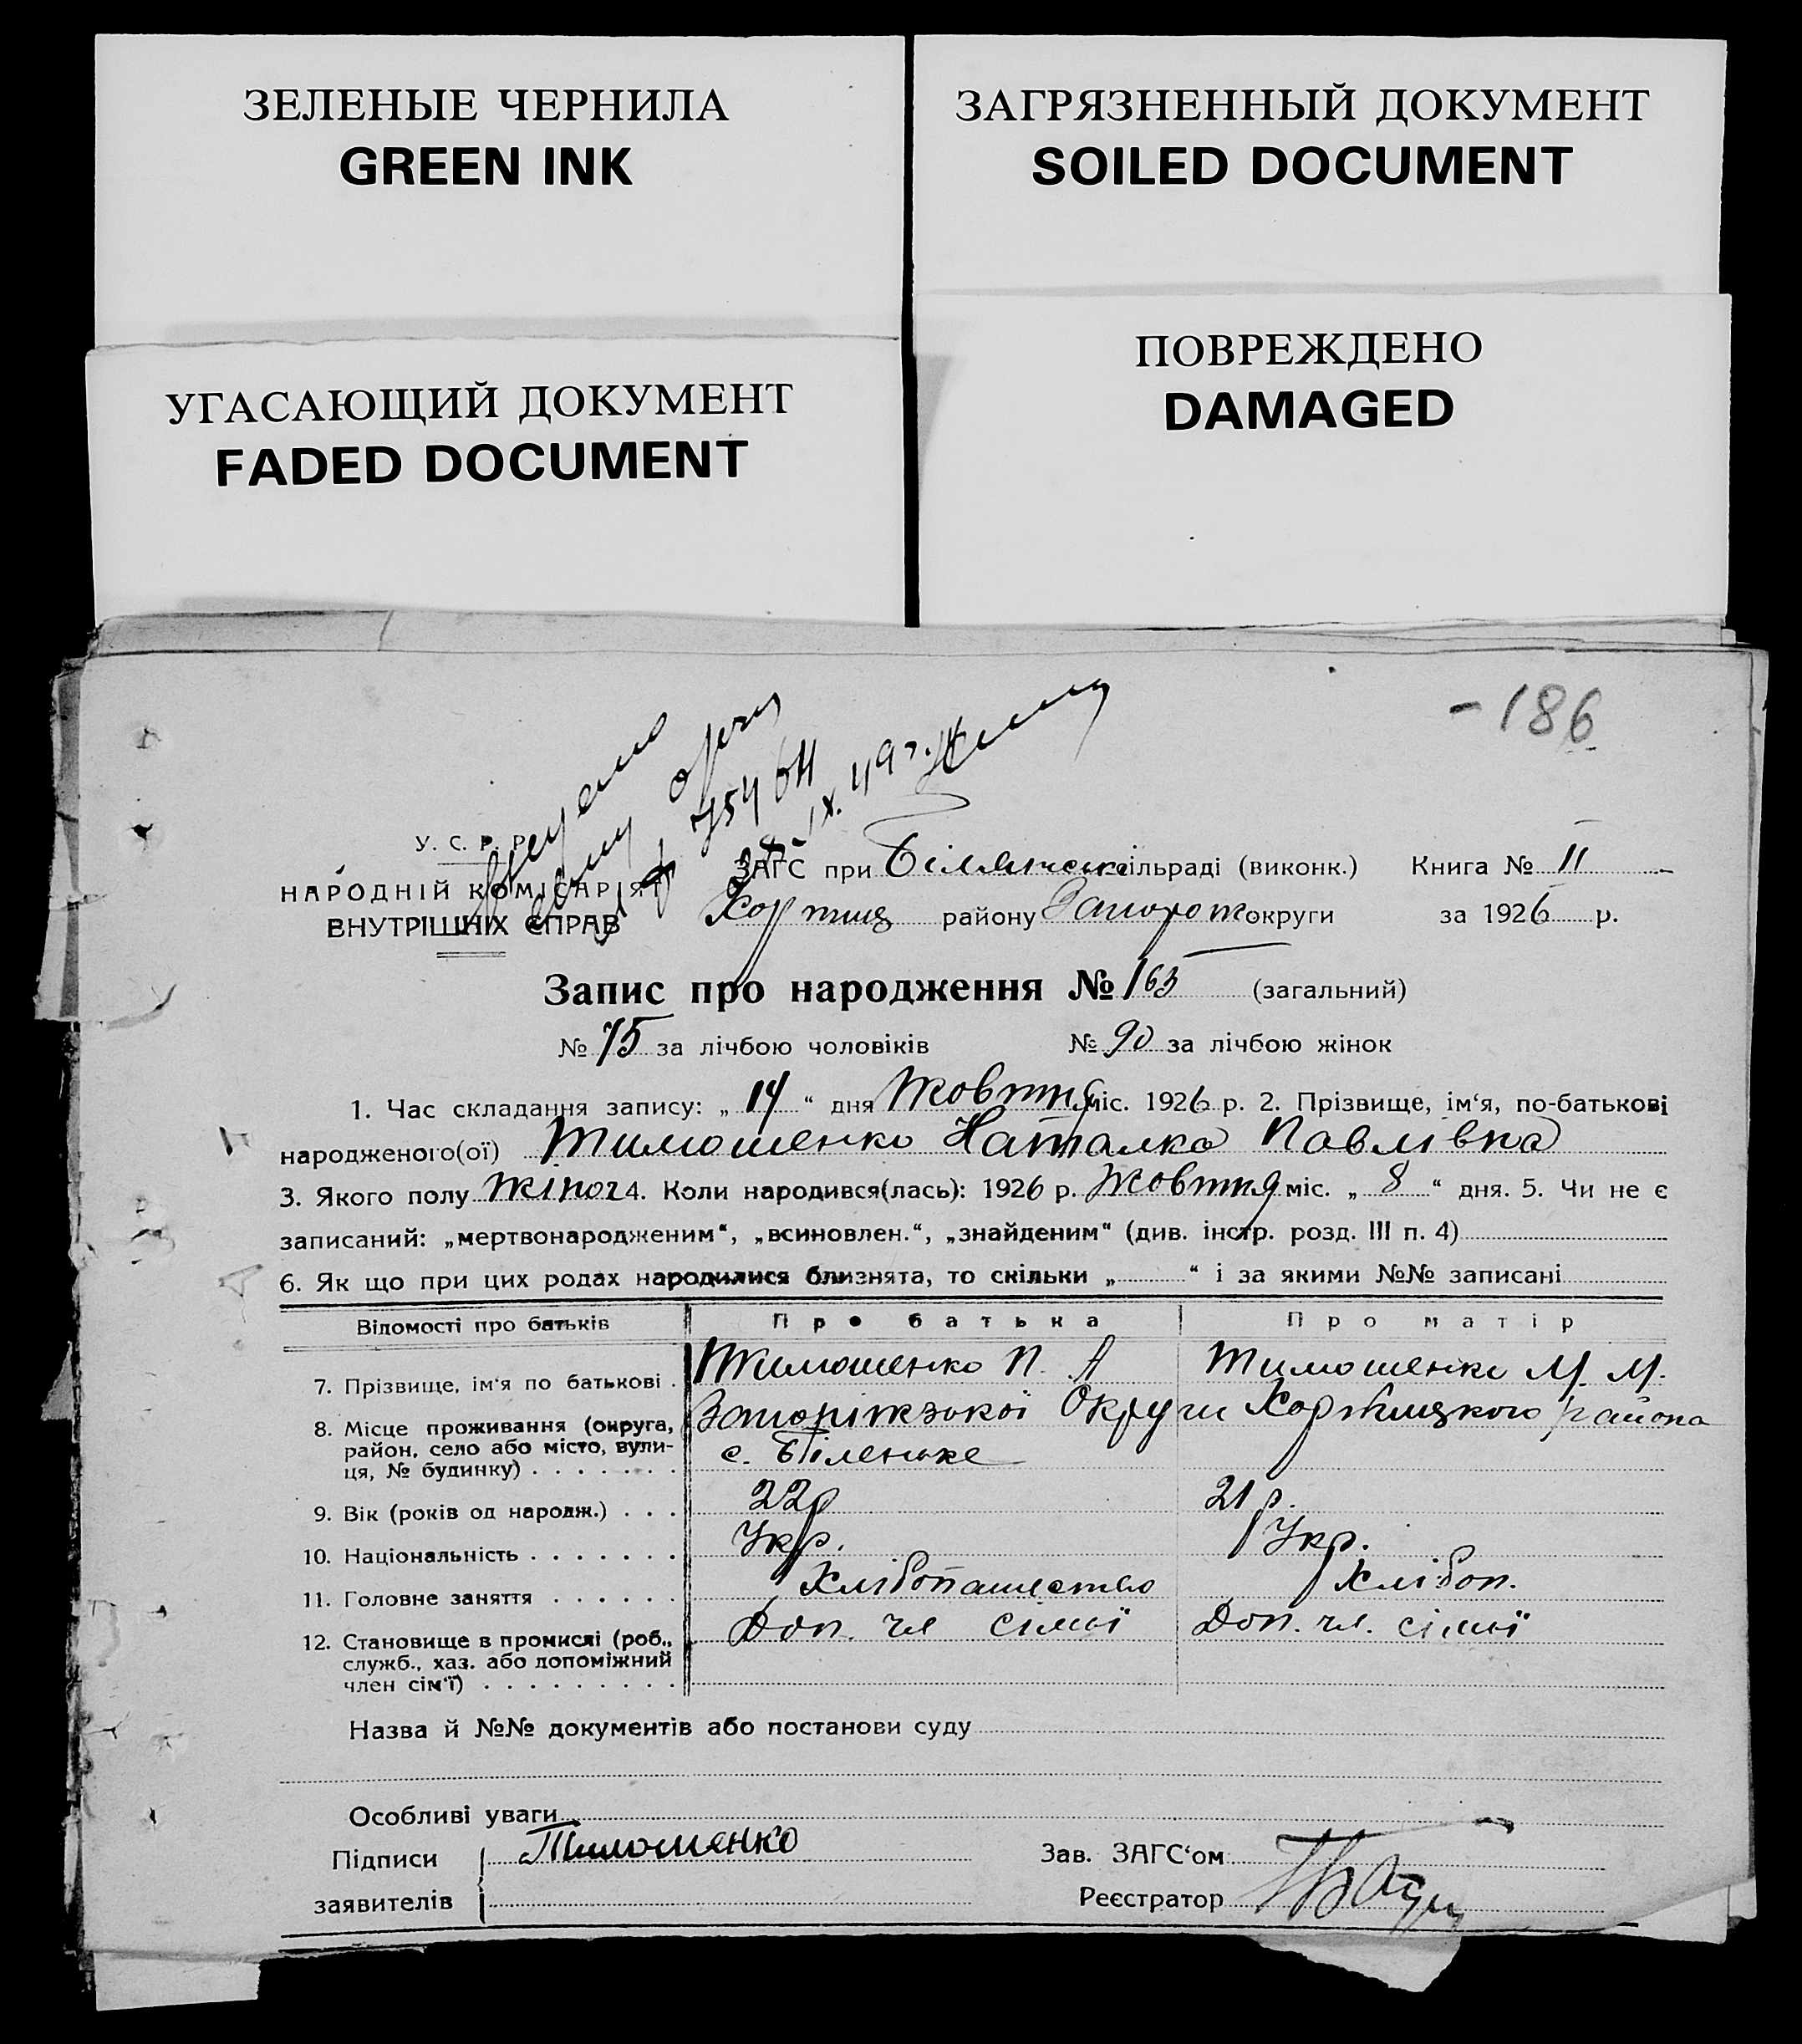 ЗЕЛЕНЫЕ ЧЕРНИЛА
GREEN INK
ЗАГРЯЗНЕННЫЙ ДОКУМЕНТ
SOILED DOCUMENT
УГАСАЮЩИЙ ДОКУМЕНТ
FADED DOCUMENT
ПОВРЕЖДЕНО
DAMAGED
-186
У. С. Р. Р.
НАРОДНІЙ КОМІСАРІЯТ
ВНУТРІШНІХ СПРАВ
ЗАГС при сільраді (виконк.) Книга № II
Хортиц району Запорож округи за 1926 р.
Запис про народження № 165 (загальний)
№ 75 за лічбою чоловіків № 90 за лічбою жінок
1. Час складання запису: „ 14 “ дня Жовтня міс. 1926 р. 2. Прізвище, ім‘я, по-батькові
народженого(ої) Тимошенко Наталка Павлівна
3. Якого полу жіноч 4. Коли народився(лась): 1926 р. Жовтня міс. „ 8 “ дня. 5. Чи не є
записаний: „мертвонародженим“, „всиновлен.“, „знайденим“ (див. інстр. розд. III п. 4)
6. Як що при цих родах народилися близнята, то скільки „ “ і за якими №№ записані
Відомості про батьків Про батька Про матір
7. Прізвище, ім‘я по батькові . Тимошенко П. А Тимошенко М. М.
8. Місце проживання (округа, Запоріжзької Округи Хортицкого района
район, село або місто, вули- с. Біленьке
ця, № будинку) . . . . . . .
9. Вік (років од народж.) . . . 22р 21 р.
10. Національність . . . . . . . Укр. Укр.
11. Головне заняття . . . . . . Хлібопашество Хлібоп.
12. Становище в промислі (роб., Доп. чл сімьї Доп. чл. сімьї
служб., хаз. або допоміжний
член сім‘ї) . . . . . . . . .
Назва й №№ документів або постанови суду
Особливі уваги
Підписи Тимошенко Зав. ЗАГС‘ом
заявителів Реєстратор